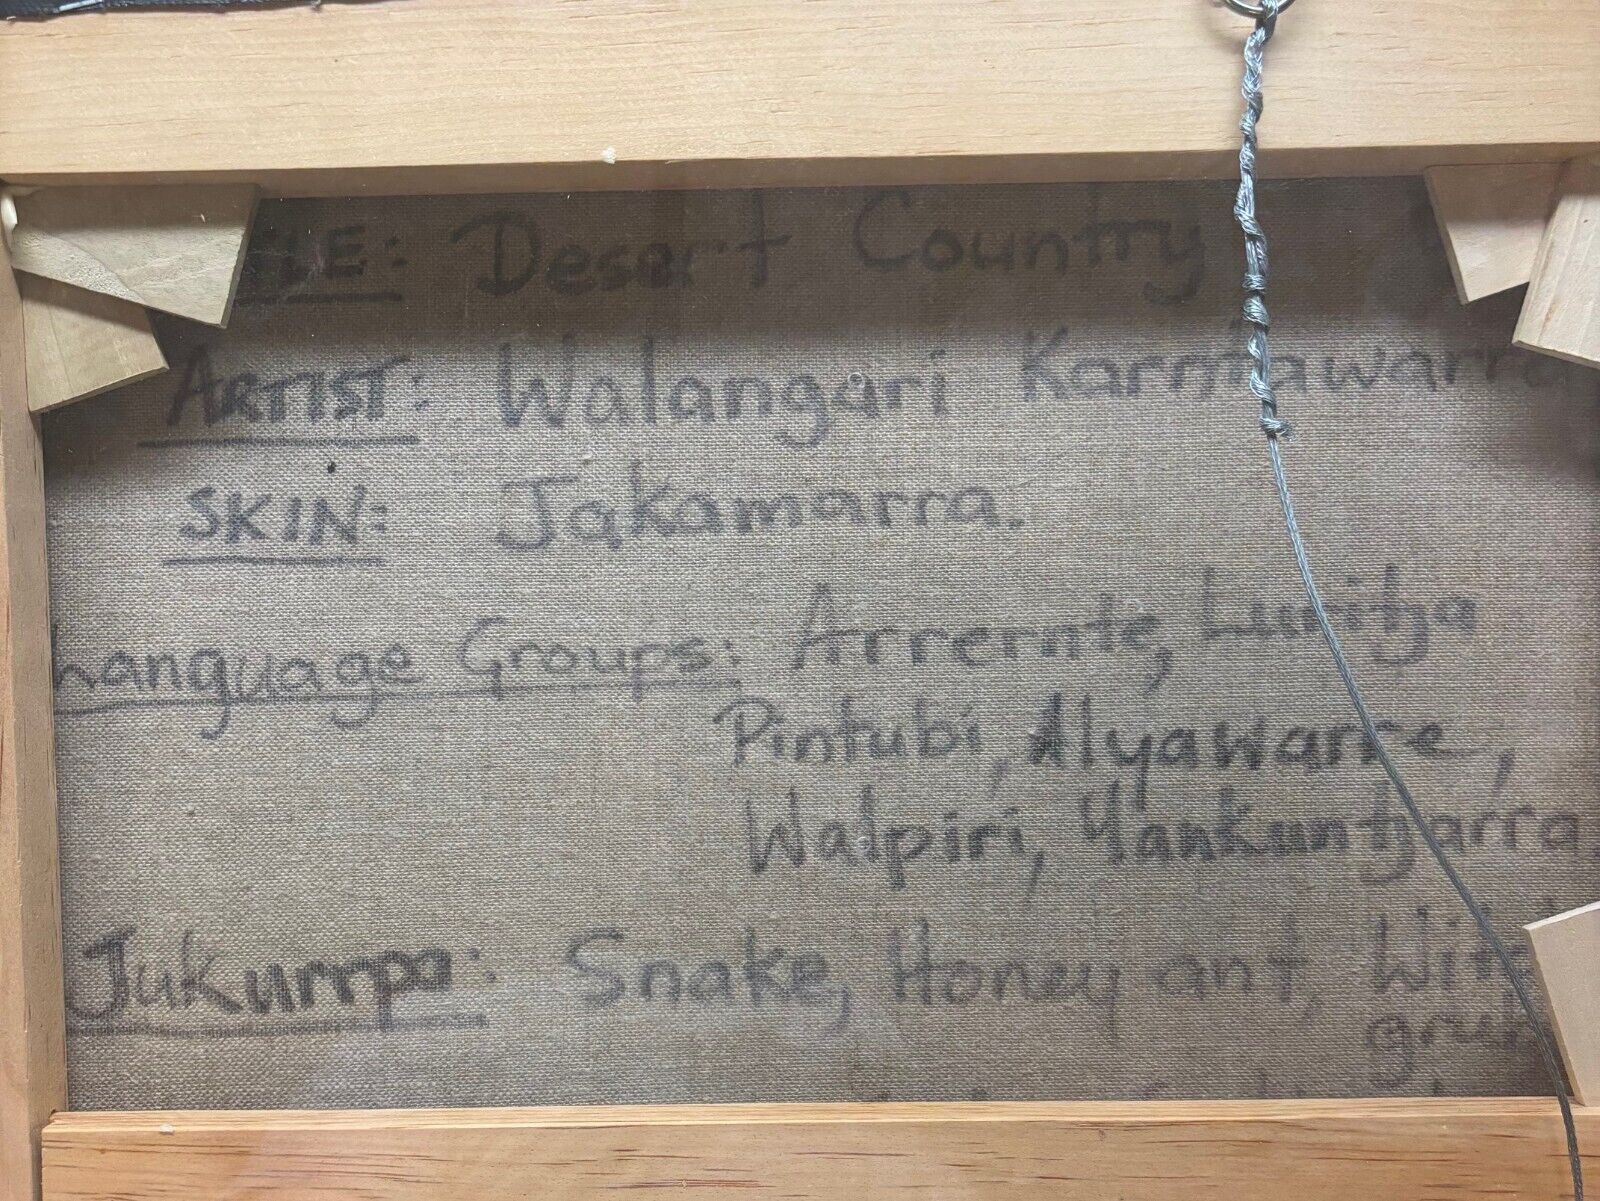 Desert Country
ARTIST: Walangari Karntawarra
SKIN: Jakamarra.
Language Groups: Arrernte, Luritja
Pintubi, Alyawarre,
Walpiri, Yankuntjarra
Jukurrpa: Snake, Honey ant,